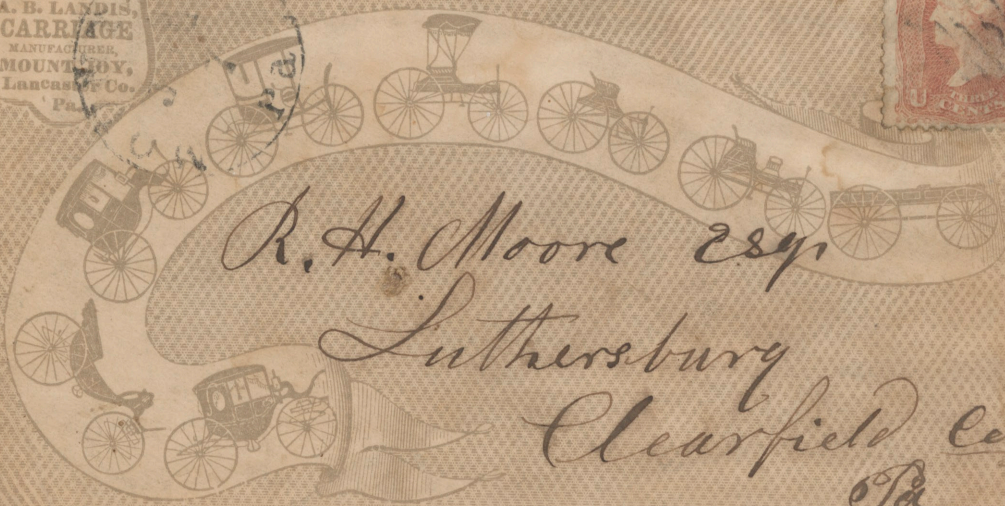 A. B. LANDIS,
CARRIAGE
MANUFACTURER,
MOUNT JOY,
Lancaster Co.
Pa.
U
THREE
CENTS
R. H. Moore Esqr
Luthersburg
Clearfield Co
Pa